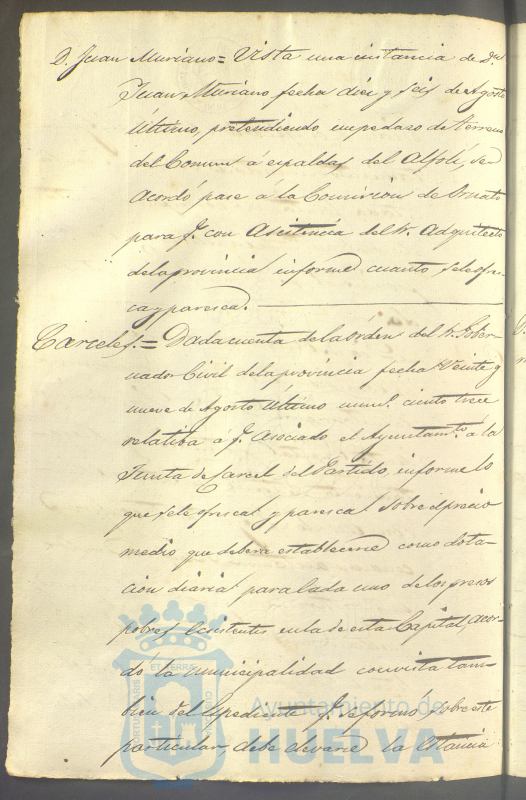 D. Juan Muriano = Vista una instancia de Dn
Juan Muriano fecha diez y seis de Agosto
último, pretendiendo un pedazo de terreno
del Comun á espaldas del Alfolí, se
acordó pase á la Comision de Ornato
para q.e con Asistencia del Sr. Arquitecto
de la provincia informe cuanto se le ofres-
ca y paresca.
Carceles. = Dada cuenta de la órden del Sr. Gober-
nador Civil de la provincia fecha Veinte y
nueve de Agosto último num.o ciento trece
relatiba á q.e Asociado el Ayuntam.to á la
Junta de Carcel del Partido, informe lo
que se le ofresca y paresca sobre el precio
medio que deberá establecerse como dota-
cion diaria para cada uno de los presos
pobres Ecsistentes en la de esta Capital, acor-
dó la municipalidad con vista tam-
bien del Espediente q.e se formó sobre este
particular, debe elevarse la
Ayuntamiento de
HUELVA